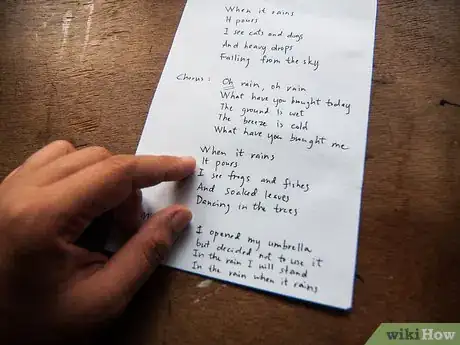 When it rains
It pours
I see cats and dogs
And heavy drops
Falling from the sky
Chorus: Oh rain, oh rain
What have you bought today
The ground is wet
The breeze is cold
What have you bought me
When it rains
It pours
I see frogs and fishes
And soaked leaves
Dancing in the trees
I opened my umbrella
but decided not to use it
In the rain I will stand
In the rain when it rains
wikiHow